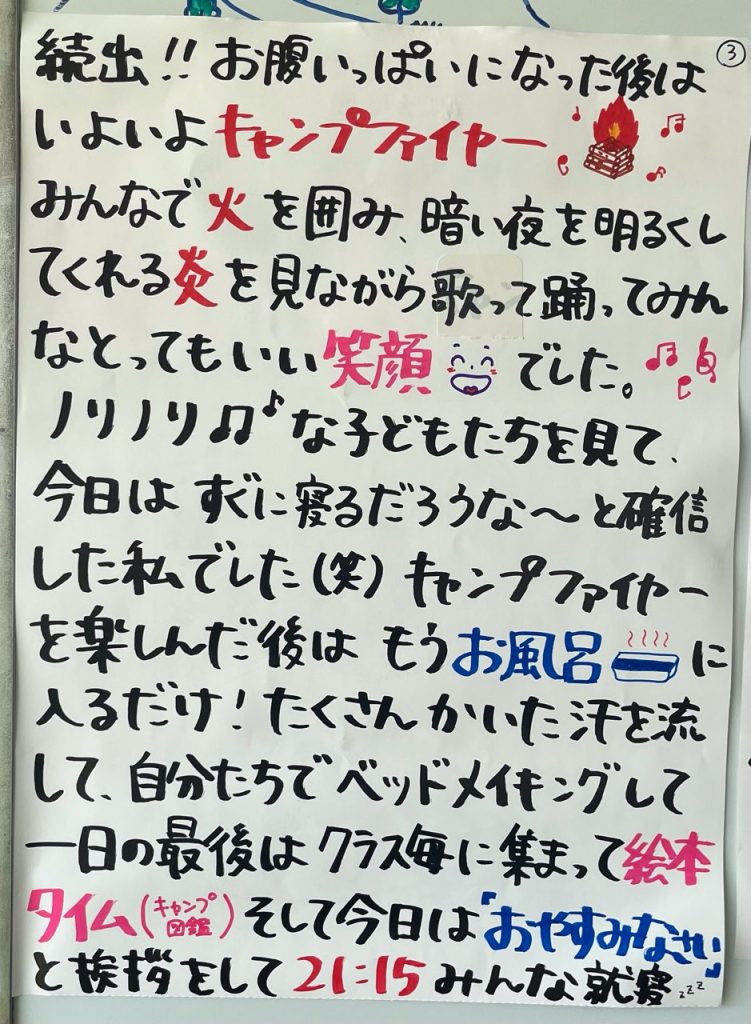 ③
続出!! お腹いっぱいになった後は
いよいよキャンプファイヤー
みんなで火を囲み、暗い夜を明るくし
てくれる炎を見ながら歌って踊ってみん
なとってもいい笑顔でした。
ノリノリ♫♪な子どもたちを見て、
今日はすぐに寝るだろうな〜と確信
した私でした(笑)キャンプファイヤー
を楽しんだ後はもうお風呂に
入るだけ!たくさんかいた汗を流
して、自分たちでベッドメイキングして
一日の最後はクラス毎に集まって絵本
タイム(キャンプ図鑑)そして今日は「おやすみなさい」
と挨拶をして21:15みんな就寝zzz